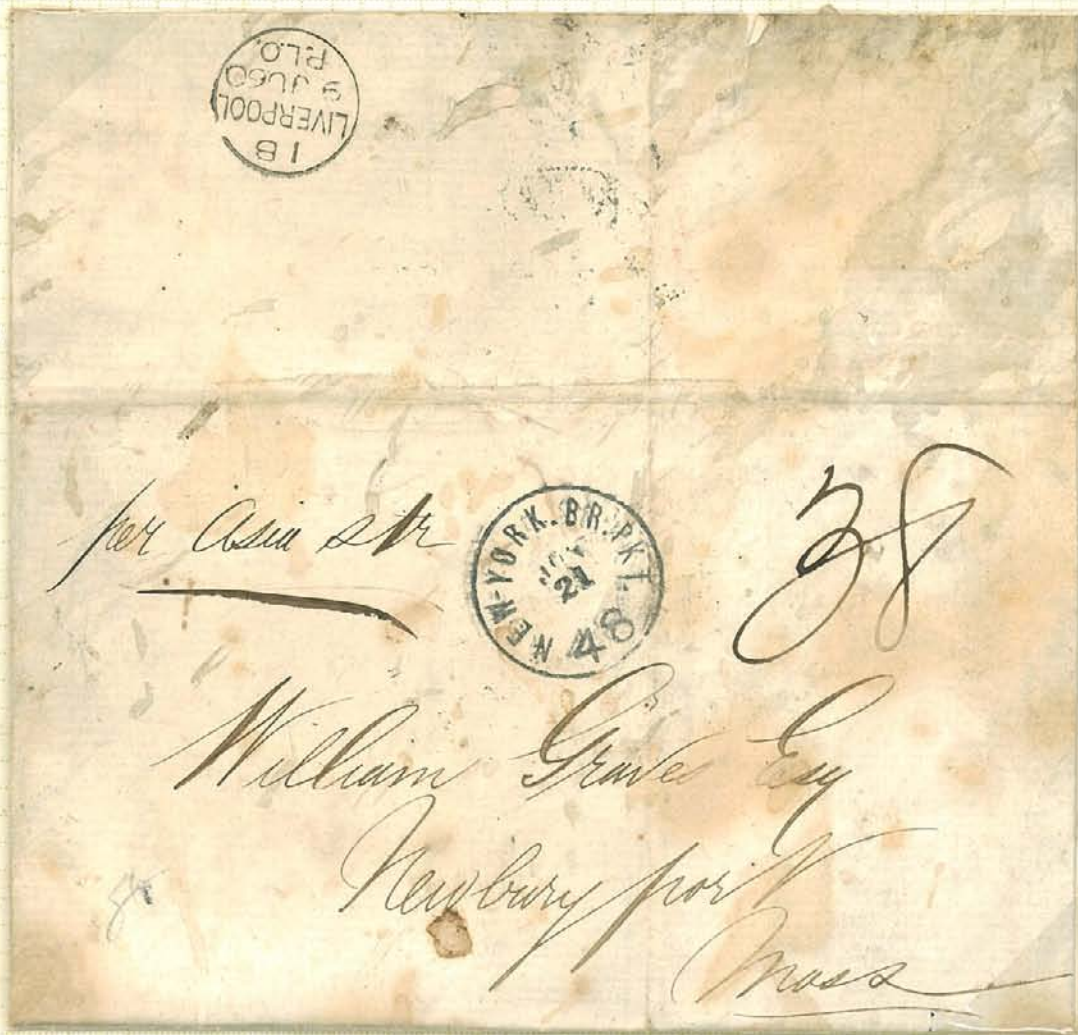 18
LIVERPOOL
9 JU60
P.L.O.
per Asia str
NEW-YORK. BR. PKT.
21
48
38
William Graves Esq
Newbury port
Mass